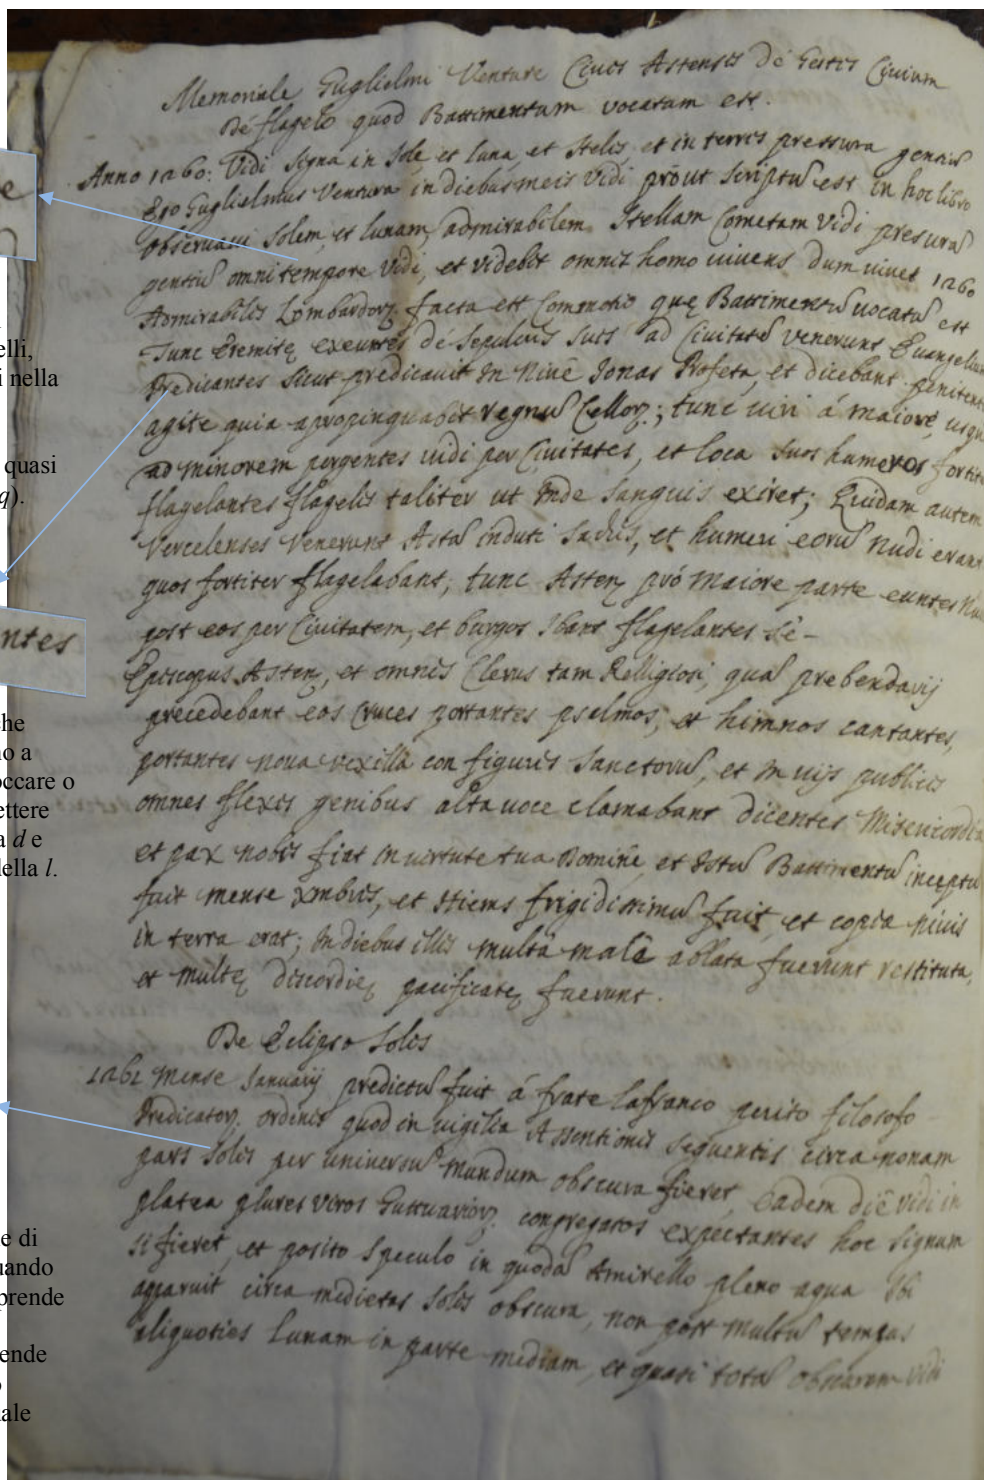 Memoriale Guglielmi Venture Civis Astensis de Gestis Civium
De flagelo quod Battimentum vocatum est.
Anno 1260: Vidi signa in Sole, et luna, et Stelis, et in terris pressura gentiũ
Ego Guglielmus Ventura in diebus meis vidi prout scriptũ est in hoc libro
observavi Solem, et lunam, admirabilem Stellam Cometam vidi presurã
gentiũ omni tempore vidi, et videbit omnis homo vivens dum vivet 1260
Admirabilis Lombardorꝫ facta est Commotio quę Battimentũ vocatũ est
Tunc Eremitę exeuntes de sepulcris suis ad Civitatẽ venerunt Evangelium
Predicantes sicut predicavit in Ninẽ Jonas Profeta, et dicebant penitent
agite quia apropinquabit regnũ Cellorꝫ; tunc viri á maiore, usqu
ad minorem pergentes vidi per Civitates, et loca suos humeros fortit
flagelantes flagelis taliter ut inde sanguis exiret; Quidam autem
Vercelenses Venerunt Astã induti sachis, et humeri eorũ nudi erant
quos fortiter flagelabant; tunc Astenꝫ pró maiore parte euntes Nu
post eos per Civitatem, et burgos Ibant flagelantes sè-
Episcopus Astenꝫ, et omnis Clerus tam Relligiosi, quã prebendarij
precedebant eos cruces portantes psalmos, et himnos cantantes,
portantes nova vexilla con figuris Sanctorũ, et in vijs publicis
omnes flexis genibus alta voce clamabant dicentes Misericordia
et pax nobis fiat in virtute tua Domine, et Istũ Battimentũ inceptũ
fuit mense Xmbris, et Hiems frigidissimũ fuit, et copia nivis
in terra erat; in diebus illis multa malè ablata fuerunt restituta,
et multę discordię pacificatę fuerunt.
De Eclipso Solis
1261 Mense Januarij predictũ fuit á frate lafranco perito filosofo
Predicatorꝫ ordinis quod in vigilia Assentionis sequentis circa nonam
pars Solis per universũ mundum obscura fieret, Eadem diẽ vidi in
platea plures viros Guttuariorꝫ congregatos expectantes hoc signum
si fieret, et posito speculo in quodã Amirello pleno aqua Ibi
apparuit circa medietas Solis obscura, non post multũ tempus
aliquoties Lunam in parte mediam, et quasi totã obscuram vidi
e
ntes
elli,
i nella
quasi
q).
he
no a
occare o
ettere
a d e
lella l.
e di
uando
prende
ende
o
ale